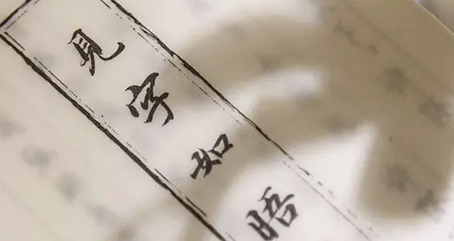 見字如晤